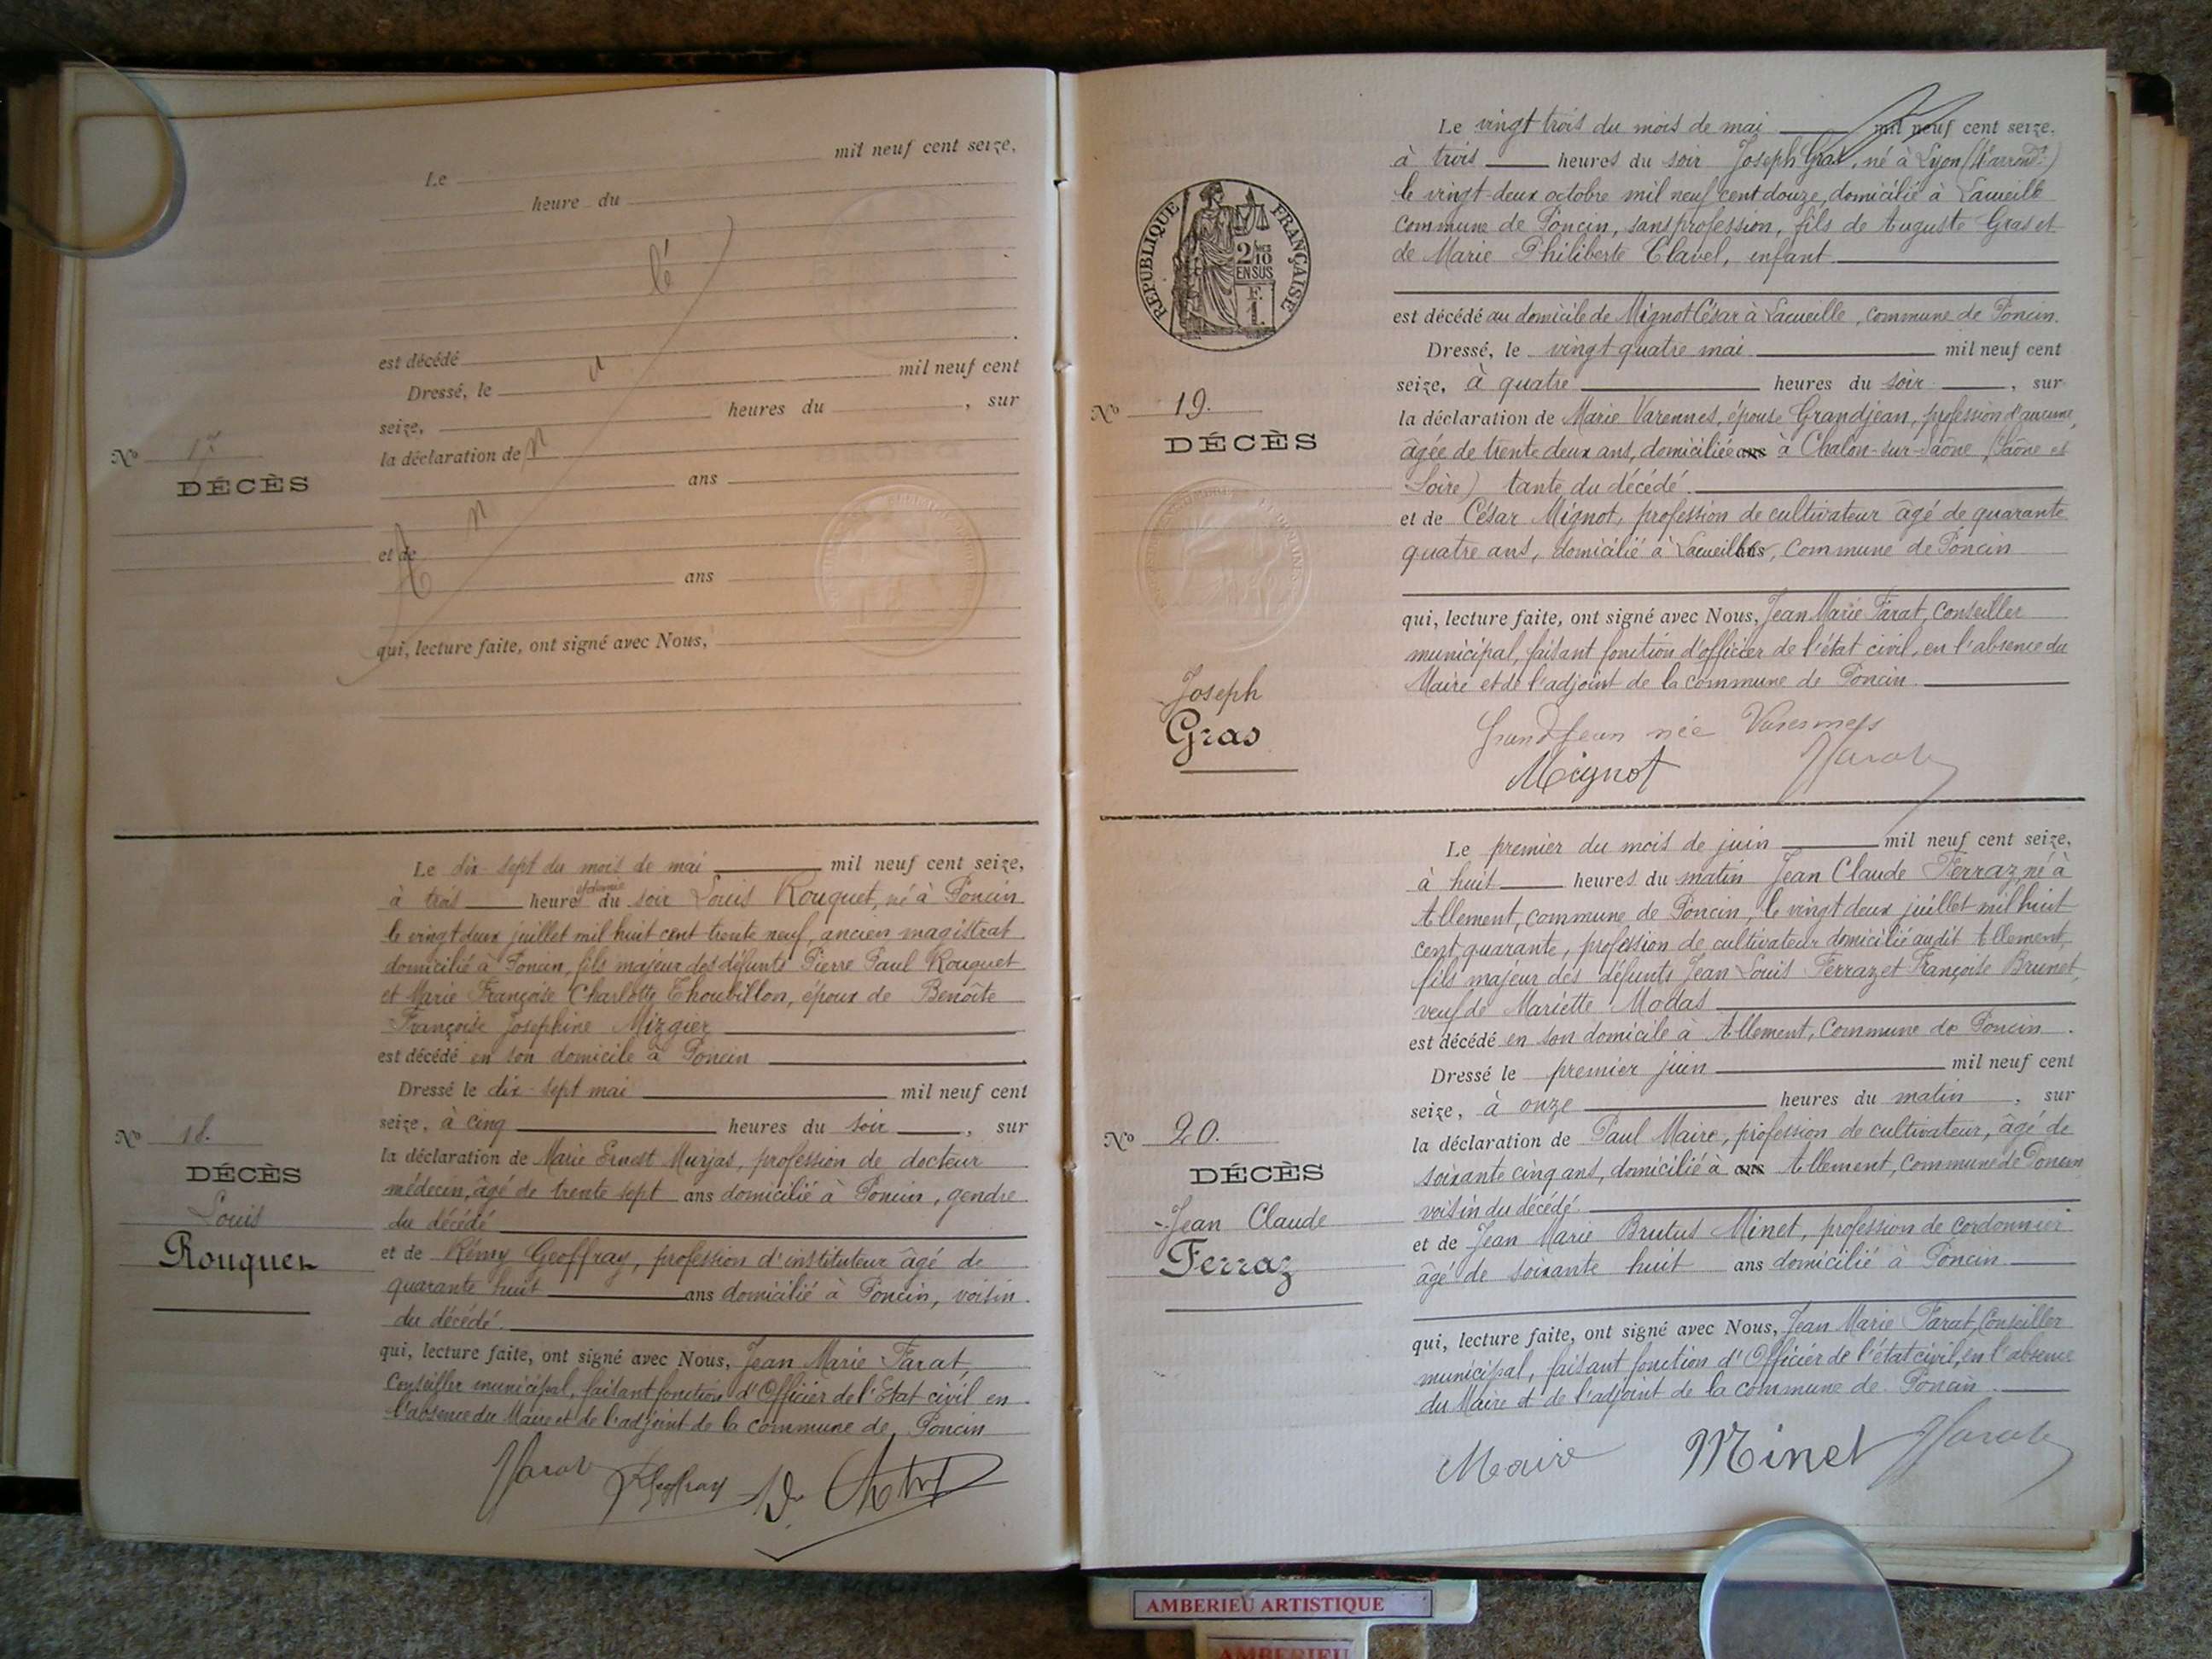 Le mil neuf cent seize,
heure du
est décédé
Dressé, le mil neuf cent
seize, heures du , sur
la déclaration de
ans
et de
ans
qui, lecture faite, ont signé avec Nous,
Annulé
No 17
DÉCÈS
Le dix-sept du mois de mai mil neuf cent seize,
à trois heures et demie du soir Louis Rouquet, né à Poncin
le vingt deux juillet mil huit cent trente neuf, ancien magistrat
domicilié à Poncin, fils majeur des défunts Pierre Paul Rouquet
et Marie Françoise Charlotte Thoubillon, époux de Benoîte
Françoise Josephine Mizgier
est décédé en son domicile à Poncin
Dressé le dix-sept mai mil neuf cent
seize, à cinq heures du soir , sur
la déclaration de Marie Ernest Murjas, profession de docteur
médecin, âgé de trente sept ans domicilié à Poncin, gendre
du décédé
et de Rémy Geoffray, profession d'instituteur âgé de
quarante huit ans domicilié à Poncin, voisin
du décédé.
qui, lecture faite, ont signé avec Nous, Jean Marie Farat,
Conseiller municipal, faisant fonction d'Officier de l'Etat civil en
l'absence du Maire et de l'adjoint de la commune de Poncin
Farat RGeoffray Dr
No 18.
DÉCÈS
Louis
Rouquet
Le vingt trois du mois de mai mil neuf cent seize,
à trois heures du soir Joseph Gras, né à Lyon (4e arrondt)
le vingt-deux octobre mil neuf cent douze, domicilié à Lacueille
commune de Poncin, sans profession, fils de Auguste Gras et
de Marie Philiberte Clavel, enfant
est décédé au domicile de Mignot César à Lacueille, commune de Poncin.
Dressé, le vingt quatre mai mil neuf cent
seize, à quatre heures du soir , sur
la déclaration de Marie Varennes, épouse Grandjean, profession d'aucune,
âgée de trente deux ans, domiciliée ans à Chalon-sur-Saône (Saône et
Loire) tante du décédé.
et de César Mignot, profession de cultivateur âgé de quarante
quatre ans, domicilié à Lacueille, commune de Poncin
qui, lecture faite, ont signé avec Nous, Jean Marie Farat, Conseiller
municipal, faisant fonction d'officier de l'état civil, en l'absence du
Maire et de l'adjoint de la commune de Poncin
Grandjean née Varennes
Mignot Farat
RÉPUBLIQUE FRANÇAISE
2/10
EN SUS
F.
1.
No 19.
DÉCÈS
Joseph
Gras
Le premier du mois de juin mil neuf cent seize,
à huit heures du matin Jean Claude Ferraz, né à
Allement, commune de Poncin, le vingt deux juillet mil huit
cent quarante, profession de cultivateur domicilié audit Allement,
fils majeur des défunts Jean Louis Ferraz et Françoise Brunet,
veuf de Mariette Modas
est décédé en son domicile a Allement, Commune de Poncin.
Dressé le premier juin mil neuf cent
seize, à onze heures du matin , sur
la déclaration de Paul Maire, profession de cultivateur, âgé de
soixante cinq ans, domicilié à ans Allement, commune de Poncin
voisin du décédé.
et de Jean Marie Brutus Minet, profession de cordonnier
âgé de soixante huit ans domicilié à Poncin
qui, lecture faite, ont signé avec Nous, Jean Marie Farat, Conseiller
municipal, faisant fonction d'Officier de l'état civil, en l'absence
du Maire et de l'adjoint de la commune de Poncin.
Maire Minet Farat
No 20.
DÉCÈS
Jean Claude
Ferraz
AMBERIEU ARTISTIQUE
AMBERIEU